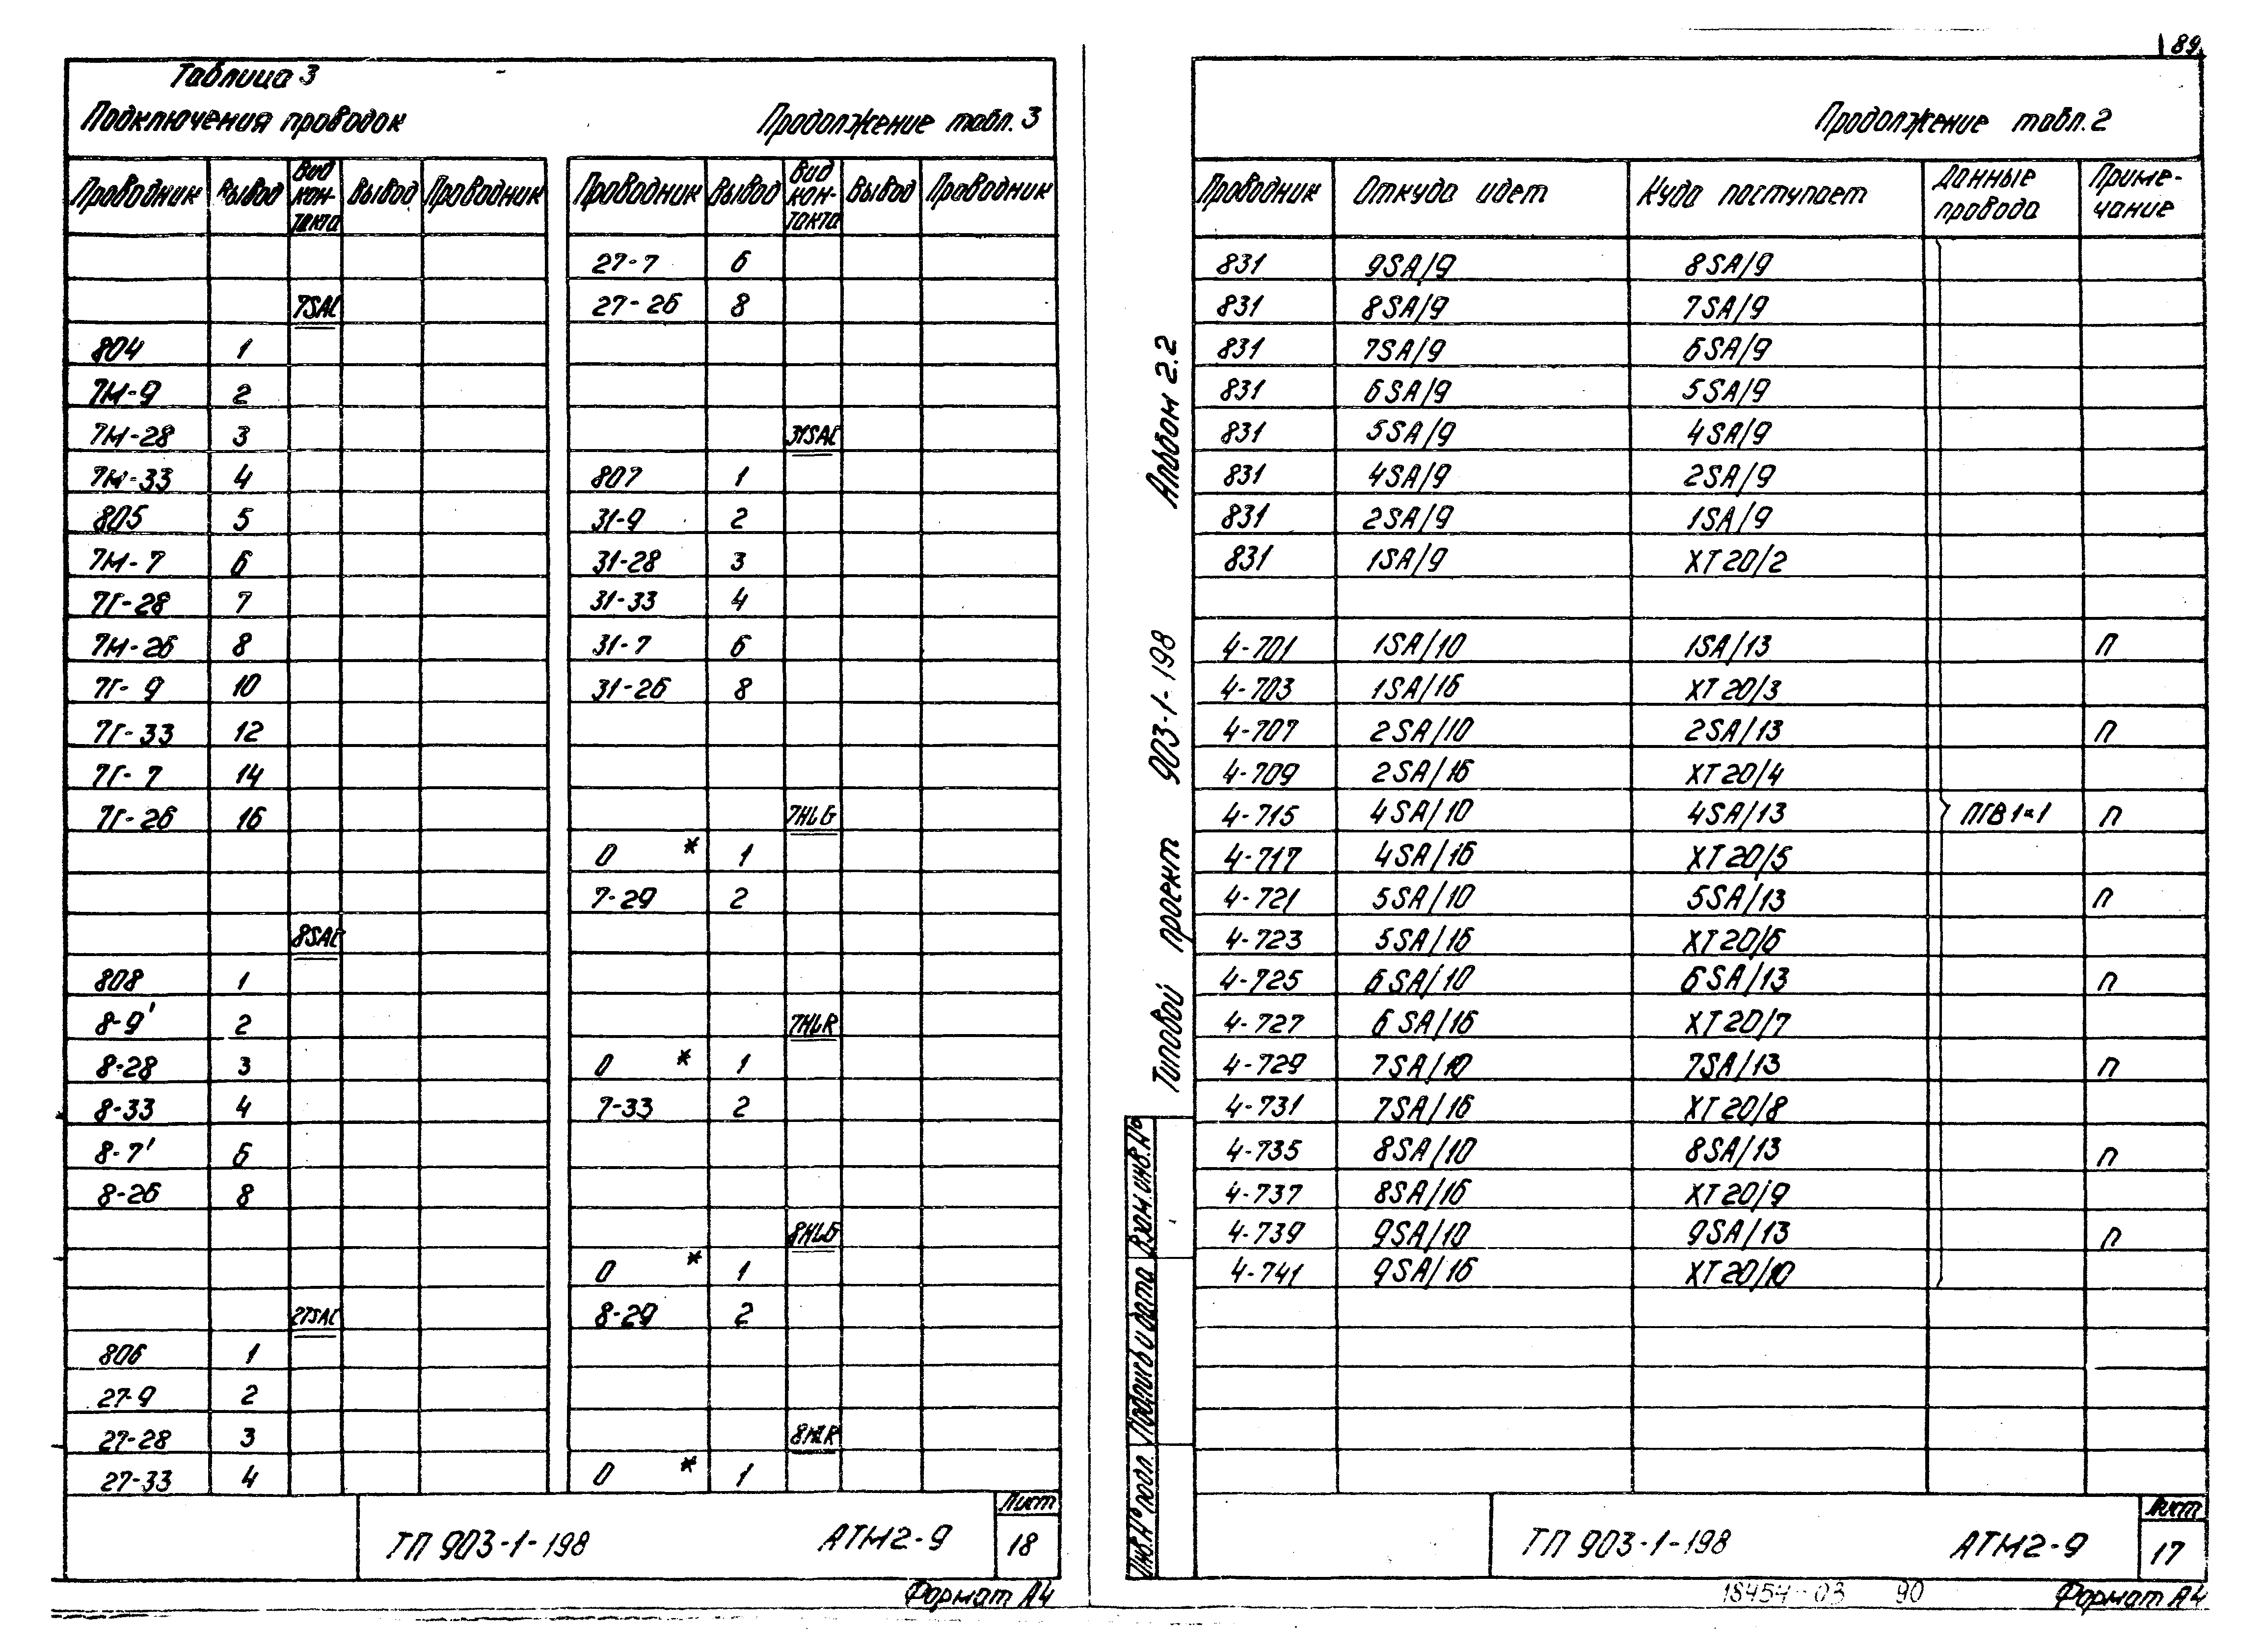 Таблица 3
Подключения проводок
Продолжение табл. 3
Проводник Вывод Вид кон- такта Вывод Проводник
7SAC
804 1
7М-9 2
7М-28 3
7М-33 4
805 5
7М-7 6
7Г-28 7
7М-26 8
7Г-9 10
7Г-33 12
7Г-7 14
7Г-26 16
8SAC
808 1
8-9' 2
8-28 3
8-33 4
8-7' 6
8-26 8
27SAC
806 1
27-9 2
27-28 3
27-33 4
Проводник Вывод Вид кон- такта Вывод Проводник
27-7 6
27-26 8
31SAC
807 1
31-9 2
31-28 3
31-33 4
31-7 6
31-26 8
7HLG
0 * 1
7-29 2
7HLR
0 * 1
7-33 2
8HLG
0 * 1
8-29 2
8HLR
0 * 1
ТП 903-1-198 АТМ2-9
Лист
18
Формат А4
89
Продолжение табл. 2
Проводник Откуда идет Куда поступает Данные провода Приме- чание
831 9SA/9 8SA/9
831 8SA/9 7SA/9
831 7SA/9 6SA/9
831 6SA/9 5SA/9
831 5SA/9 4SA/9
831 4SA/9 2SA/9
831 2SA/9 1SA/9
831 1SA/9 XT20/2
4-701 1SA/10 1SA/13 п
4-703 1SA/16 XT20/3
4-707 2SA/10 2SA/13 п
4-709 2SA/16 XT20/4
4-715 4SA/10 4SA/13 ПГВ1×1 п
4-717 4SA/16 XT20/5
4-721 5SA/10 5SA/13 п
4-723 5SA/16 XT20/6
4-725 6SA/10 6SA/13 п
4-727 6SA/16 XT20/7
4-729 7SA/10 7SA/13 п
4-731 7SA/16 XT20/8
4-735 8SA/10 8SA/13 п
4-737 8SA/16 XT20/9
4-739 9SA/10 9SA/13 п
4-741 9SA/16 XT20/10
Типовой проект 903-1-198 Альбом 2.2
Инв.№ подл. Подпись и дата Взам.инв.№
ТП 903-1-198 АТМ2-9
Лист
17
18454-03 90
Формат А4